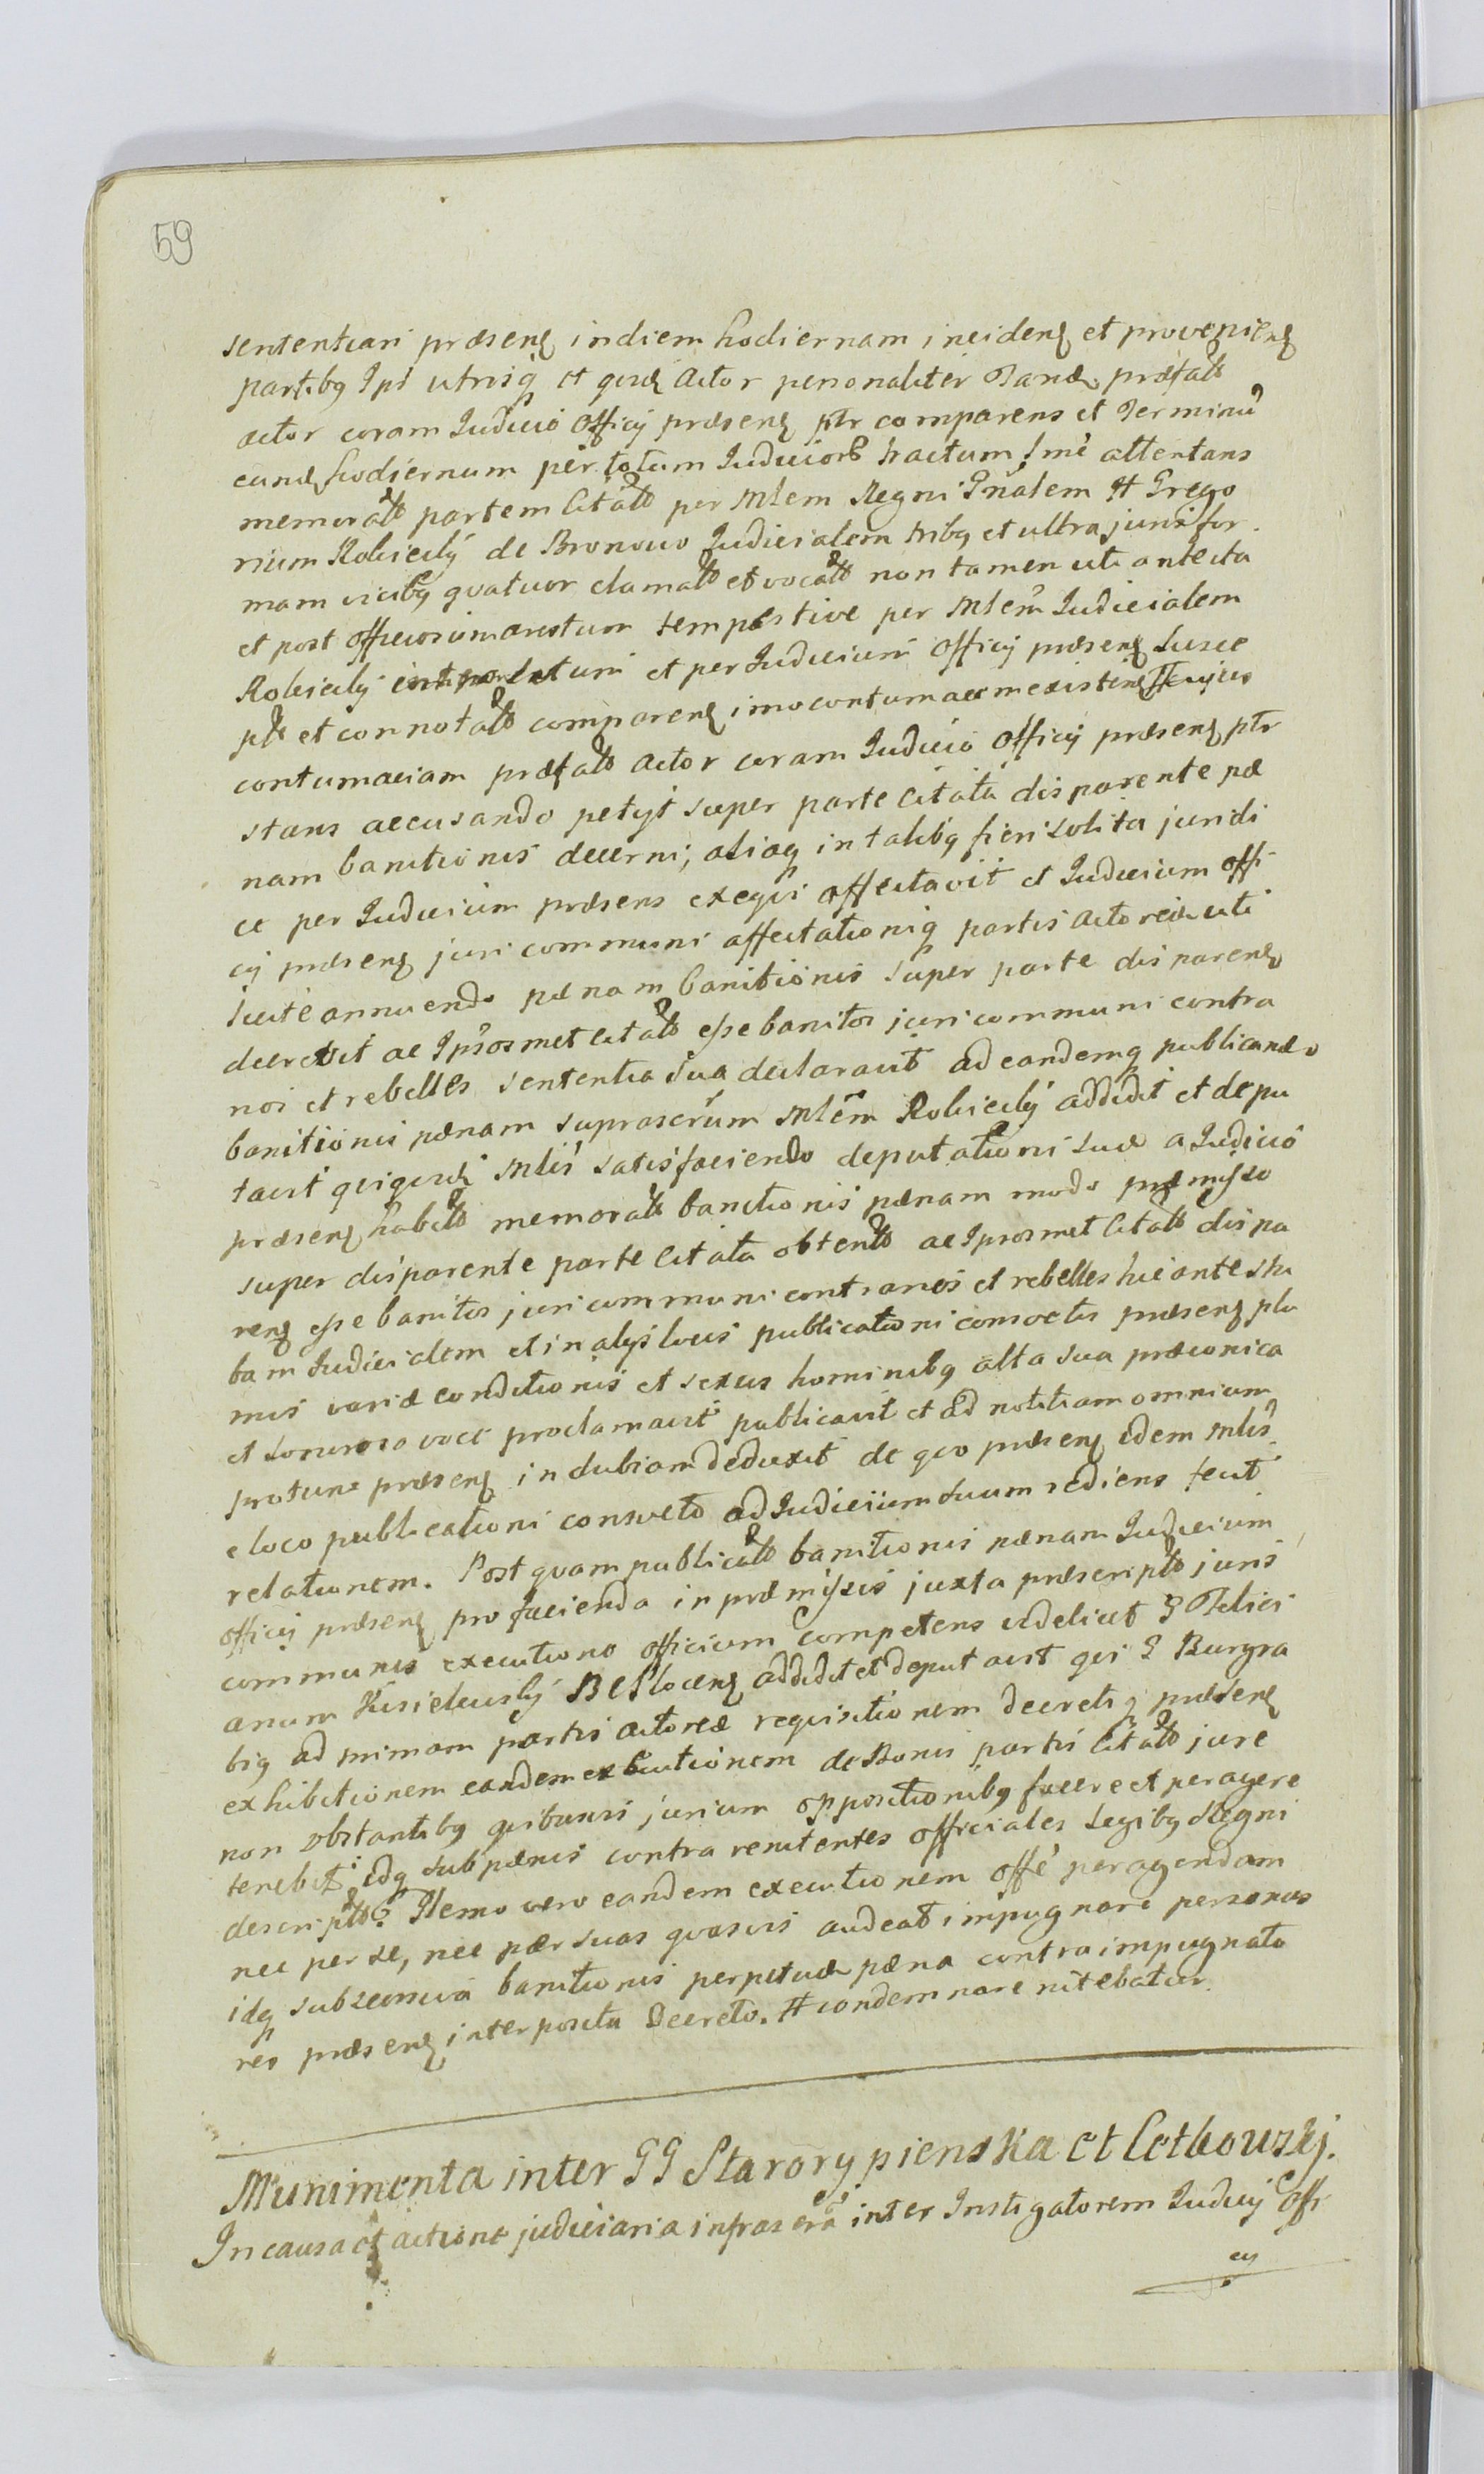 59
sententiari præsenę in diem hodiernam incidenę et provenienę
partibg Ipś utrisq̨ et qund Actor personaliter Tandę præfatt
actor coram Judicio Officij præsenę ptr comparens et Terminũ
eund hodiernum per totum Judiciorꝫ tractum lme attentans
memoratt partem Citatt per Mlem Regni Gnalem H Grego
rium Robicilÿ de Bronowo Judicialem tribg et ultra juris for
mam vicibg quatuor clamatt et vocatt non tamen uti ante ita
et post officiosum arestum tempestive per Mlem Judicialem
Robicily et per Judicium officij præsenę susce
ptt et connotatt comparenę imo contumacem existenę cujus
contumaciam præfatt actor coram Judicio Officij præsenę ptr
stans accusando petijt super parte Citata disparente pæ
nam banitionis decerni; aliaq̨ in talibg fieri solita juridi
ce per Judicium præsens exequi affectavit et Judicium offi
cij præsenę juri communi affectationiq̨ partis actoreæ uti
juste annuendo pænam banitionis super parte disparenę
decrevit ac Ipsosmet citatt esse banitos juri communi contra
rios et rebelles sententia sua declaravit ad eandemq̨ publicandę
banitionis pænam suprascrum Mlem Robicilÿ addidit et depu
tavit qui quid Mlis satisfaciendo deputationi suæ a Judicio
præsenę habitt memoratt banitionis pænam modo præmisso
super disparente parte Citata obtentt ac Ipsosmet Citatt dispa
renę esse banitos juri communi contrarios et rebelles hic ante stu
bam Judicialem et in alijs locis publicationi consuetis præsenę plu
mis variæ conditionis et sexus hominibg alta sua præconica
et sonorosa voce proclamavit publicavit et ad notitiam omnium
protunc præsenę indubiam deduxit de quo præsenę idem Mlis
e loco publicationi consueto ad Judicium suum rediens fecit
relationem. Post quam publicatt banitionis pænam Judicium
officij præsenę pro facienda in præmissis juxta præscriptt juris
communis executione officium competens videlicet G Felici
anum Kisielewsky B C Plocenę addidit et deputavit qui G Burgra
big ad primam partis actoreæ requisitionem decretiq̨ præsenę
exhibitionem eandem executionem de Bonis partis Citatt jure
non obstantibg quibusvis jurium oppositionibg facere et peragere
tenebit; idq̨ sub pænis contra renitentes officiales Legibg Regni
descriptt. Nemo vero eandem executionem offe peragendam
nec per se, nec per suas quasvis audeat impugnare personas
idq̨ sub secura banitionis perpetuæ pæna contra impugnato
res præsenę interposita Decreto. H condemnare nitebatur.
Munimenta inter GG Starorypienska et Cetkowskj.
In causa et actione judiciaria infrascra inter Instigatorem Judicij Offi
cij